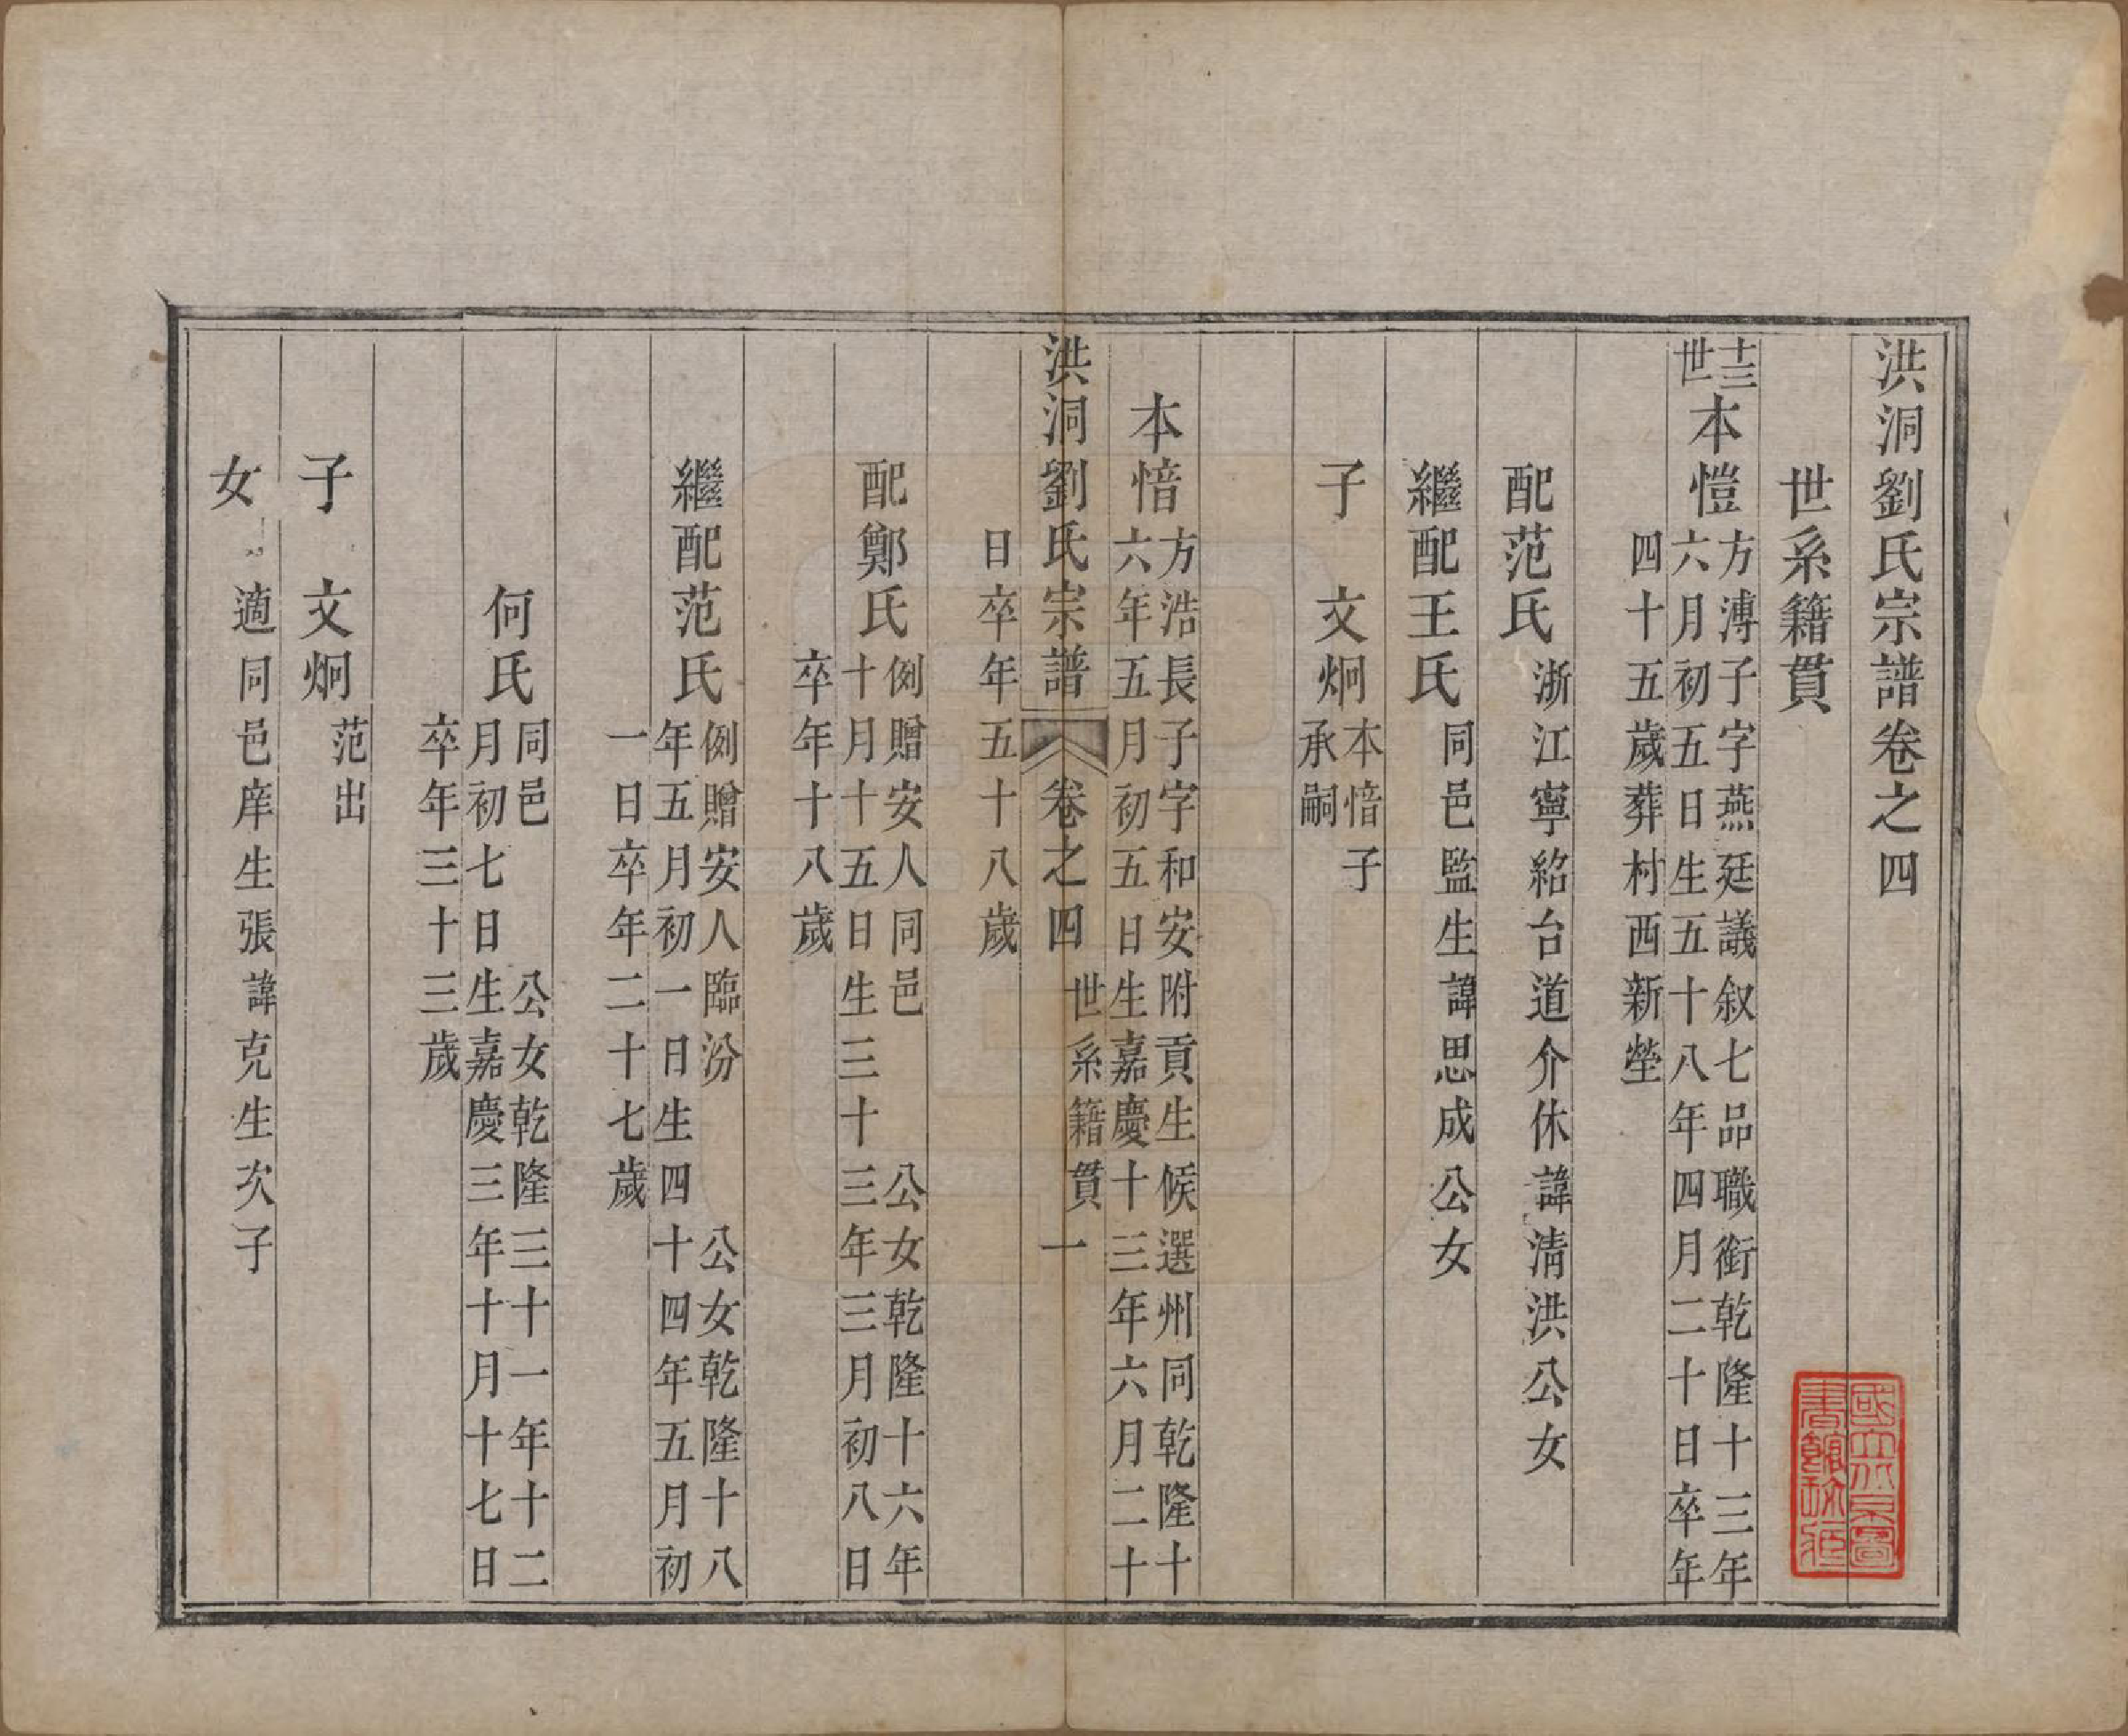 洪洞劉氏宗譜卷之四
世系籍貫
十三世
本愷
方溥子字燕廷議叙七品職銜乾隆十三年
六月初五日生五十八年四月二十日卒年
四十五歲葬村西新塋
配范氏
浙江寧紹台道介休諱淸洪公女
繼配王氏
同邑監生諱思成公女
子 文炯
本愔子
承嗣
本愔
方浩長子字和安附貢生候選州同乾隆十
六年五月初五日生嘉慶十三年六月二十
日卒年五十八歲
洪洞劉氏宗譜 卷之四 世系籍貫 一
配鄭氏
例贈安人同邑 公女乾隆十六年
十月十五日生三十三年三月初八日
卒年十八歲
繼配范氏
例贈安人臨汾 公女乾隆十八
年五月初一日生四十四年五月初
一日卒年二十七歲
何氏
同邑 公女乾隆三十一年十二
月初七日生嘉慶三年十月十七日
卒年三十三歲
子 文炯
范出
女
適同邑庠生張諱克生次子
國立北平圖
書館珍藏